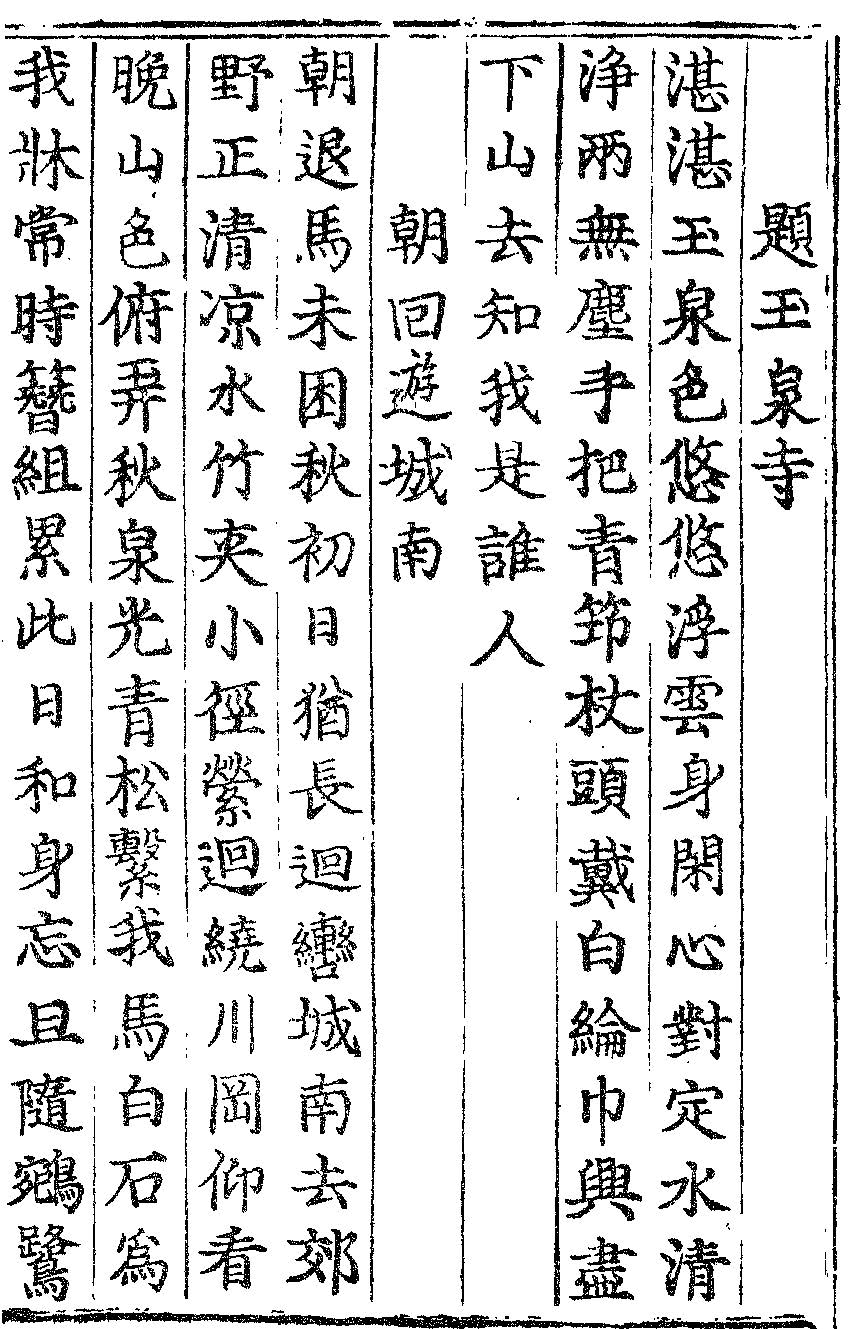 題玉泉寺
湛湛玉泉色悠悠浮雲身閑心對定水清
浄兩無塵手把青筇杖頭戴白綸巾興盡
下山去知我是誰人
朝回遊城南
朝退馬未困秋初日猶長迴轡城南去郊
野正清凉水竹夾小徑縈迴繞川岡仰看
晚山色俯弄秋泉光青松繫我馬白石爲
我牀常時簪組累此日和身忘旦隨鵷鷺